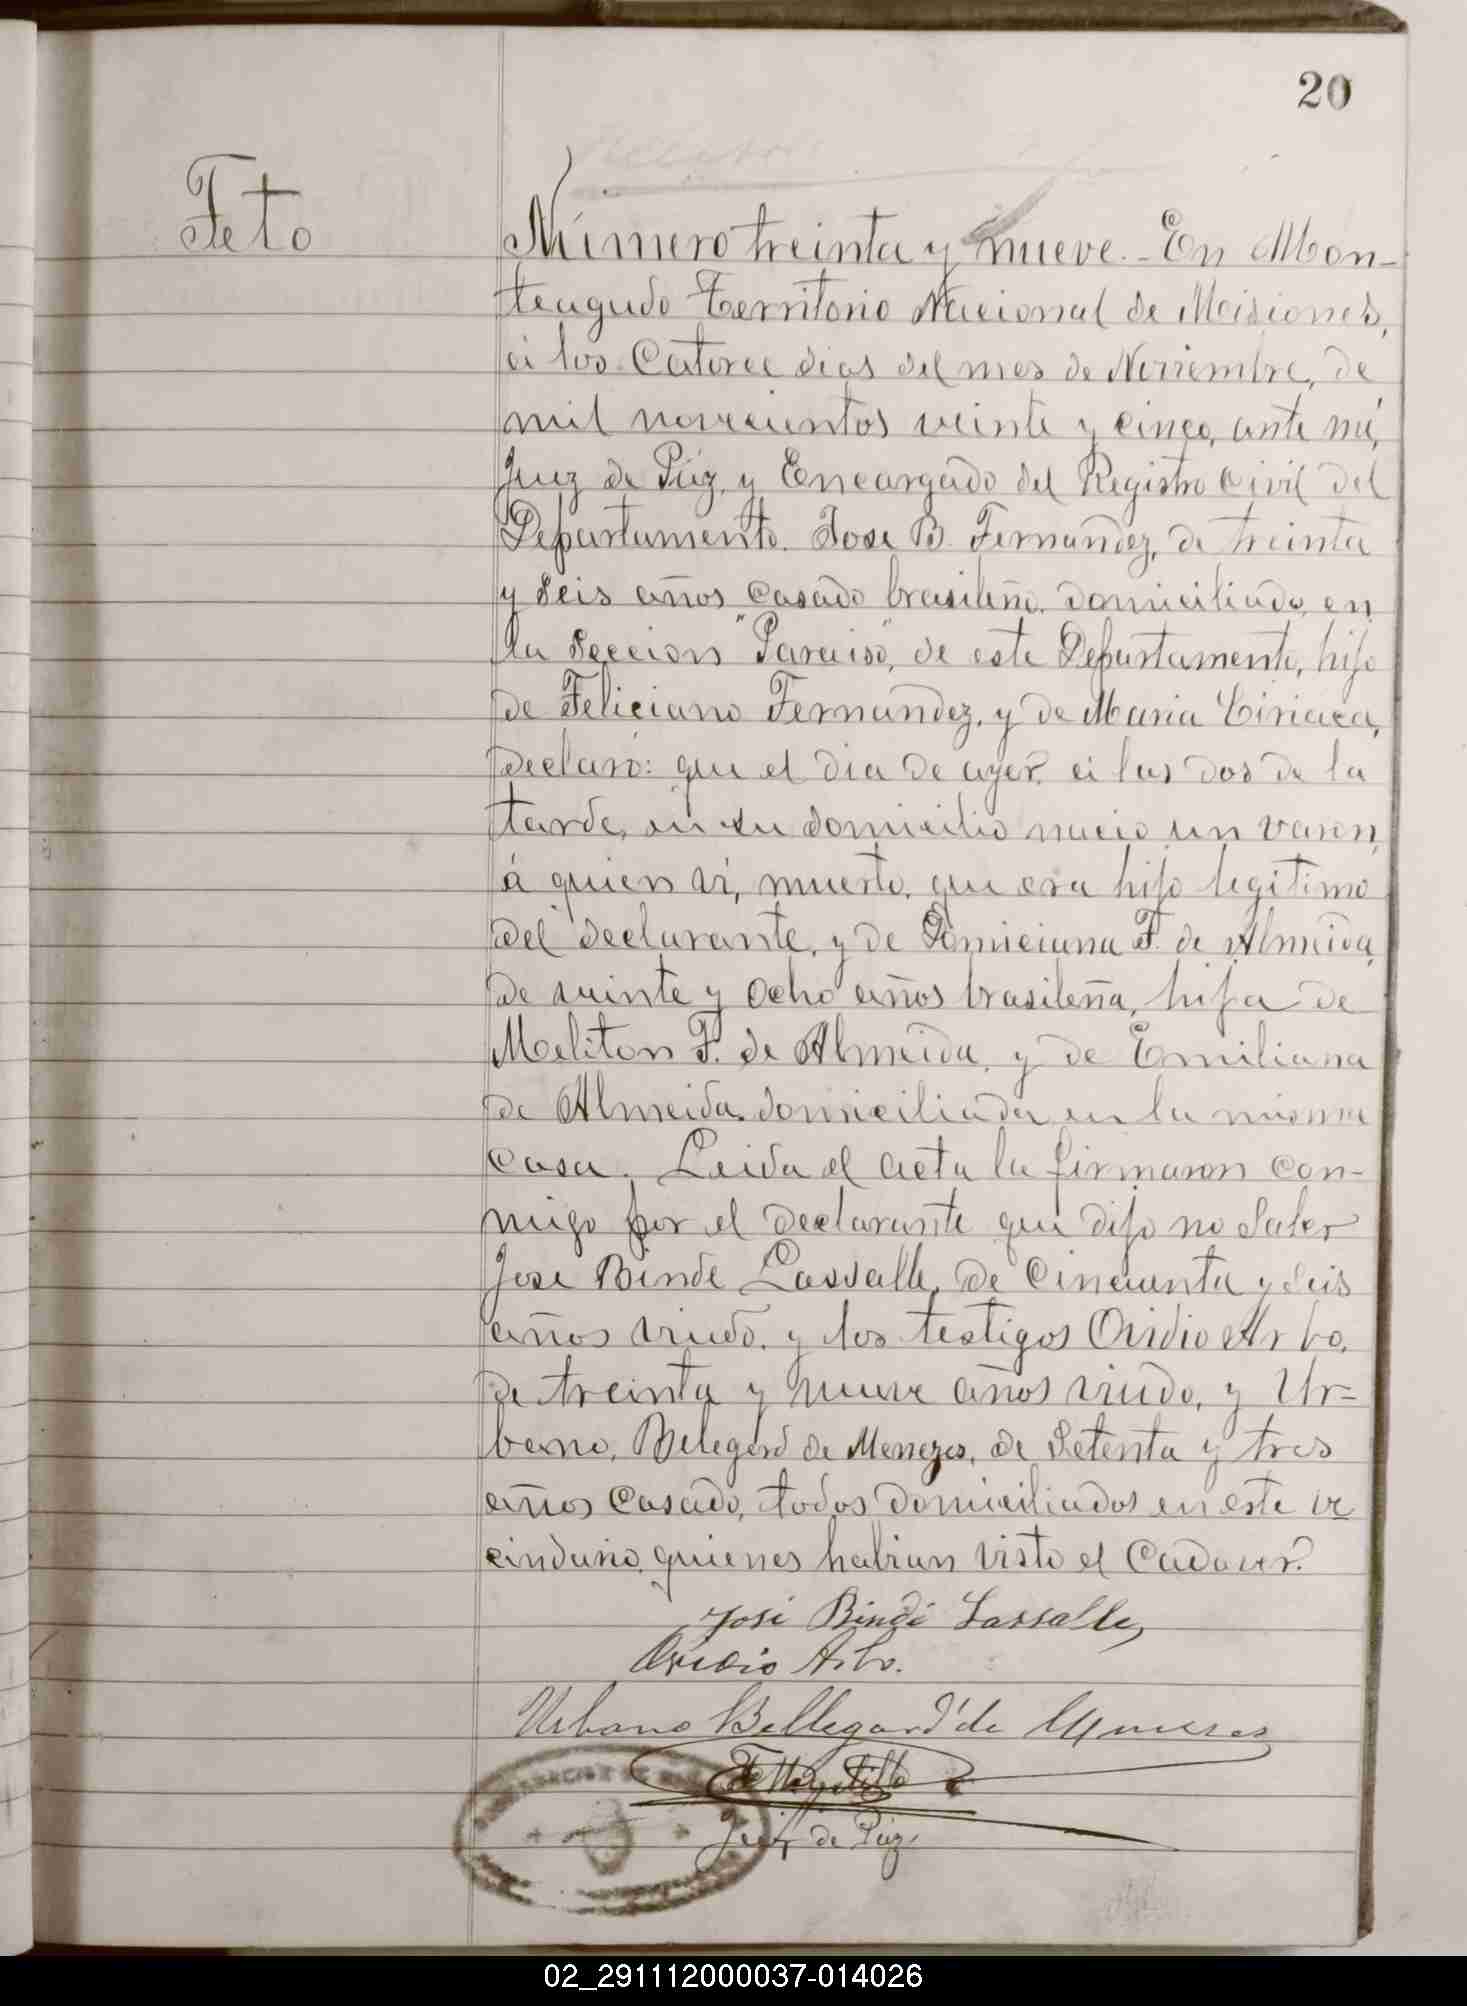 20
Feto
Número treinta y nueve.- En Mon-
teagudo Territorio Nacional de Misiones,
á los Catorce dias del mes de Noviembre, de
mil novecientos veinte y cinco, ante mí,
Juez de Páz, y Encargado del Registro Civil del
Departamento. Jose B. Fernandez, de treinta
y Seis años Casado brasileño. domiciliado, en
la Seccion "Paraiso", de este Departamento, hijo
de Feliciano Fernandez, y de Maria Ciriaca,
declaró: que el dia de ayer á las dos de la
tarde, en su domicilio nacio un varon,
á quien vi, muerto, que era hijo legitimo
del declarante, y de Domiciana F. de Almeida,
de veinte y Ocho años brasileña, hija de
Meliton F. de Almeida, y de Emiliana
de Almeida. domiciliada en la misma
Casa. Leida el acta la firmaron Con-
migo por el declarante que dijo no Saber
Jose Bindé Lassalle, de Cincuenta y Seis
años viudo, y los testigos Ovidio Arbo,
de treinta y nueve años viudo, y Ur-
bano, Belegard de Menezes, de Setenta y tres
años Casado, todos domiciliados en este ve
cindario, quienes habian visto el Cadaver.
José Bindé Lassalle,
Ovidio Arbo.
Urbano Bellegard de Menezes
Juez de Páz.
02_291112000037-014026